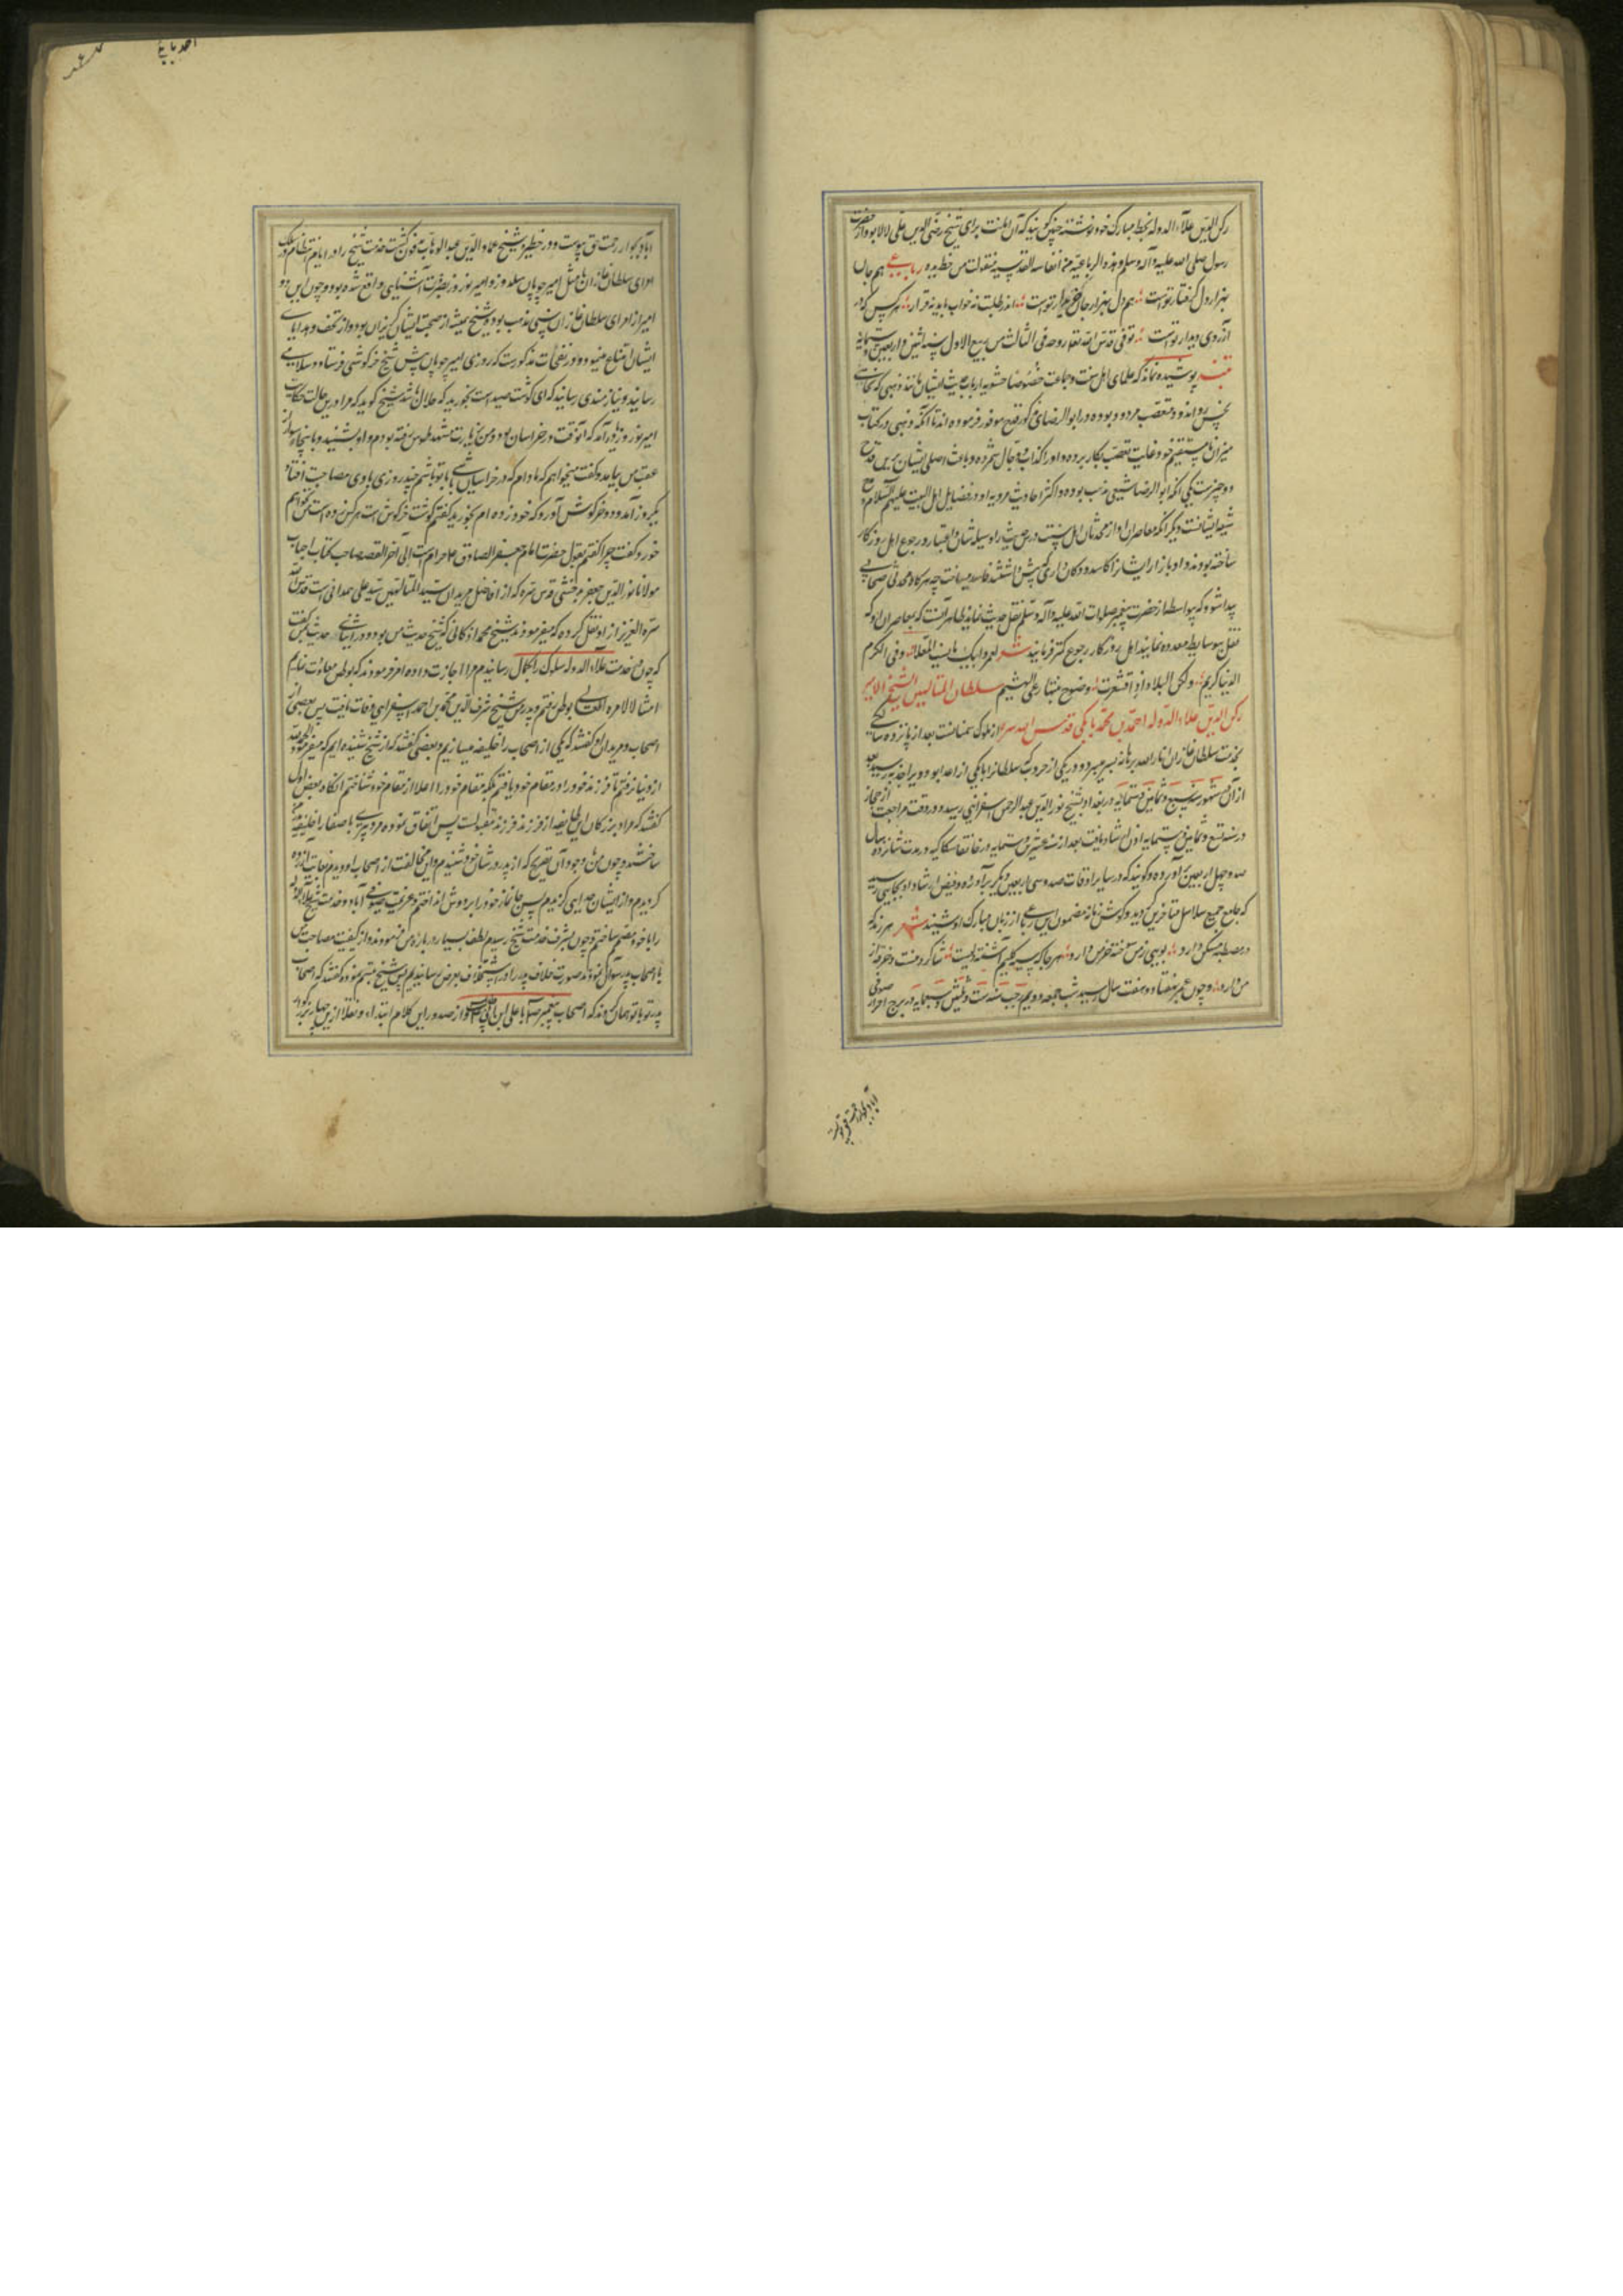 رکن الدین علاء الدوله بخط مبارک خود نوشته چنین گویند که آن امانت برای شیخ رضی الدین علی لالا بود از حضرت
رسول صلی الله علیه وآله وسلم و هذه الرباعیة من انفاسه القدسیه نقلت من خطه بیده رباعی هم جان
بهزار دل گرفتار تو است هم دل بهزار جان خریدار تو است اندر طلبت نه خواب یابد نه قرار هر کس که در
آرزوی دیدار تو است توفی قدس الله تعالی روحه فی الثالث من ربیع الاول سنه اثنین و اربعین و ستمایه
پوشیده نماند که علمای اهل سنت و جماعت خصوصا حشویه ارباب حدیث ایشان مانند ذهبی که
متعصب مردود بوده در ابوالرضای مذکور قدح موفور فرموده اند تا آنکه ذهبی در کتاب
میزان نا مستقیم خود غایت تعصب بکار برده و او را کذاب و دجال شمرده و باعث اصلی ایشان برین قدح
دو چیزست یکی آنکه ابوالرضا شیعی مذهب بوده و اکثر احادیث مرویه او در فضایل اهل البیت علیهم السلام و مدح
شیعه ایشانست و دیگر آنکه معاصران او از محدثان اهل سنت درس حدیث را وسیله شان و اعتبار و رجوع اهل روزگار
ساخته بودند و او بازار ایشان را کاسد و دکان داری پیش داشتند فاسد میساخت چه هرگاه محدثی صحابی
پیدا شود که بیواسطه از حضرت پیغمبر صلوات الله علیه وآله وسلم نقل حدیث نماید ظاهر آنست که بمعاصران او که
نقل بوسایط معدوده نمایند اهل روزگار رجوع کمتر فرمایند شعر لعمر ابیک ما نسب المعلا وفی الکرم
الدنیا کریم ولکن البلاد اذا اقشعرت وضوح نبتها رعی الهشیم سلطان المتالهین الشیخ الامیر
رکن الدین علاء الدوله احمد بن محمد بیابانکی قدس الله سره از ملوک سمنانست بعد از پانزده سالگی
بخدمت سلطان غازان انار الله برهانه بسر میبرد و در یکی از حروب که سلطان را با یکی از اعدا بود ویرا جذبه رسید بعد
از آن شهور سنه سبع و ثمانین و ستمایه در بغداد بشیخ نور الدین عبدالرحمن اسفراینی رسید و در وقت مراجعت از حجاز
در سنه تسع و ثمانین و ستمایه اذن ارشاد یافت بعد از سنه عشرین و سبعمایه در خانقاه سکاکیه در مدت شانزده سال
صد و چهل اربعین برآورده و گویند که در سایر اوقات صد و سی اربعین دیگر برآورده و فیض ارشاد او بجایی رسید
که جامع جمیع سلاسل متاخرین گردید و گوش زمانه مضمون این رباعی از زبان مبارک او شنید شعر هر رند که
در مصطبه مسکن دارد بویی ز من سوخته خرمن دارد هر جا که سیه گلیم آشفته دلیست شاگرد منست و خرقه از
من دارد و چون عمر بهفتاد و هفت سال رسید شب جمعه دویم رجب سنه ست و ثلثین و سبعمایه در برج احرار صوفی
آباد بجوار رحمت حق پیوست
آباد بجوار رحمت حق پیوست و در خطیره شیخ عماد الدین عبدالوهاب مدفون گشت خدمت شیخ را در ایام
امرای سلطان غازان خان مثل امیر چوپان سلدوز و امیر نوروز بضرورت آشنایی واقع شده بود و چون این دو
امیر از امرای سلطان غازان سنی مذهب بودند شیخ همیشه از صحبت ایشان گریزان بود و از تحف و هدایای
ایشان امتناع مینمود و در نفحات مذکورست که روزی امیر چوپان پیش شیخ خرگوشی فرستاد و سلامی
رسانید و نیازمندی رسانید که این گوشت صید است بخورید که حلال باشد شیخ گوید که مرا در این حالت حکایت
امیر نوروز یاد آمد که آنوقت در خراسان بود و من بزیارت مشهد طوس رفته بودم و او بشنید و با پنجاه سوار
عقب من بیامد و گفت میخواهم که مادام که در خراسان باشی با تو باشم چند روزی با وی مصاحبت افتاد
یکروز آمد و دو خرگوش آورد که خود زده ام بخورید گفتم گوشت خرگوش است هر کس زده است نخواهم
خورد گفت چرا گفتم بقول حضرت امام جعفر الصادق علیه السلام حرام است الی آخر القصه صاحب کتاب احباب
مولانا نور الدین جعفر بدخشی قدس سره که از افاضل مریدان سید المتالهین سید علی همدانی است قدس الله
سره العزیز از او نقل کرده که میفرمودند شیخ محمد اذکانی که شیخ حدیث من بود در اثنای حدیث گفت
که چون بخدمت علاء الدوله سلوک را بکمال رسانیدم مرا اجازت داد و امر فرمودند که بوطن معاودت نمایم
امتثالا لامره العالی بوطن رفتم و پدرش شیخ شرف الدین محمد بن احمد اسفراینی وفات یافت پس بعضی از
اصحاب و مریدان او گفتند که یکی از اصحاب را خلیفه میسازیم و بعضی گفتند که از شیخ شنیده ایم که میفرمود الحمد لله
از دنیا نرفتم تا فرزند خود را در مقام خود یافتم بلکه مقام خود را اعلا از مقام خود شناختم آنگاه بعض اول
گفتند که مراد بزرگان این طایفه از فرزند فرزند معنویست پس اتفاق نموده مرد پیری با صفا را خلیفه
ساختند و چون من با وجود آن تصریح که از پدر در شان خود شنیدم و این مخالفت از اصحاب او دیدم بغایت آزرده
گردیدم و از ایشان جدایی گزیدم پس جانماز خود را بر دوش انداختم و عزیمت صوفی آباد و خدمت شیخ علاء الدوله
را با خود مصمم ساختم و چون بشرف خدمت شیخ رسیدم لطف بسیار در باره من فرمودند و از کیفیت مصاحبت من
با اصحاب پدر سوال نمودند صورت خلاف پدر را در استخلاف بعرض رسانیدم پس شیخ تبسم نمود و گفتند که اصحاب
پدر تو با تو همان کردند که اصحاب پیغمبر با علی ابن ابی طالب و از صدور این کلام ابتداء و نقلا ازین چهار بزرگوار